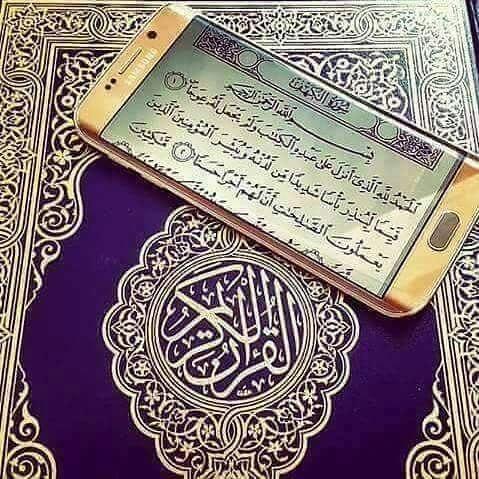 SAMSUNG
سورة الكهف
بسم الله الرحمن الرحيم
الحمد لله الذي أنزل على عبده الكتاب ولم يجعل له عوجا ۜ ١
قيما لينذر بأسا شديدا من لدنه ويبشر المؤمنين الذين
يعملون الصالحات أن لهم أجرا حسنا ٢ ماكثين
القرآن الكريم